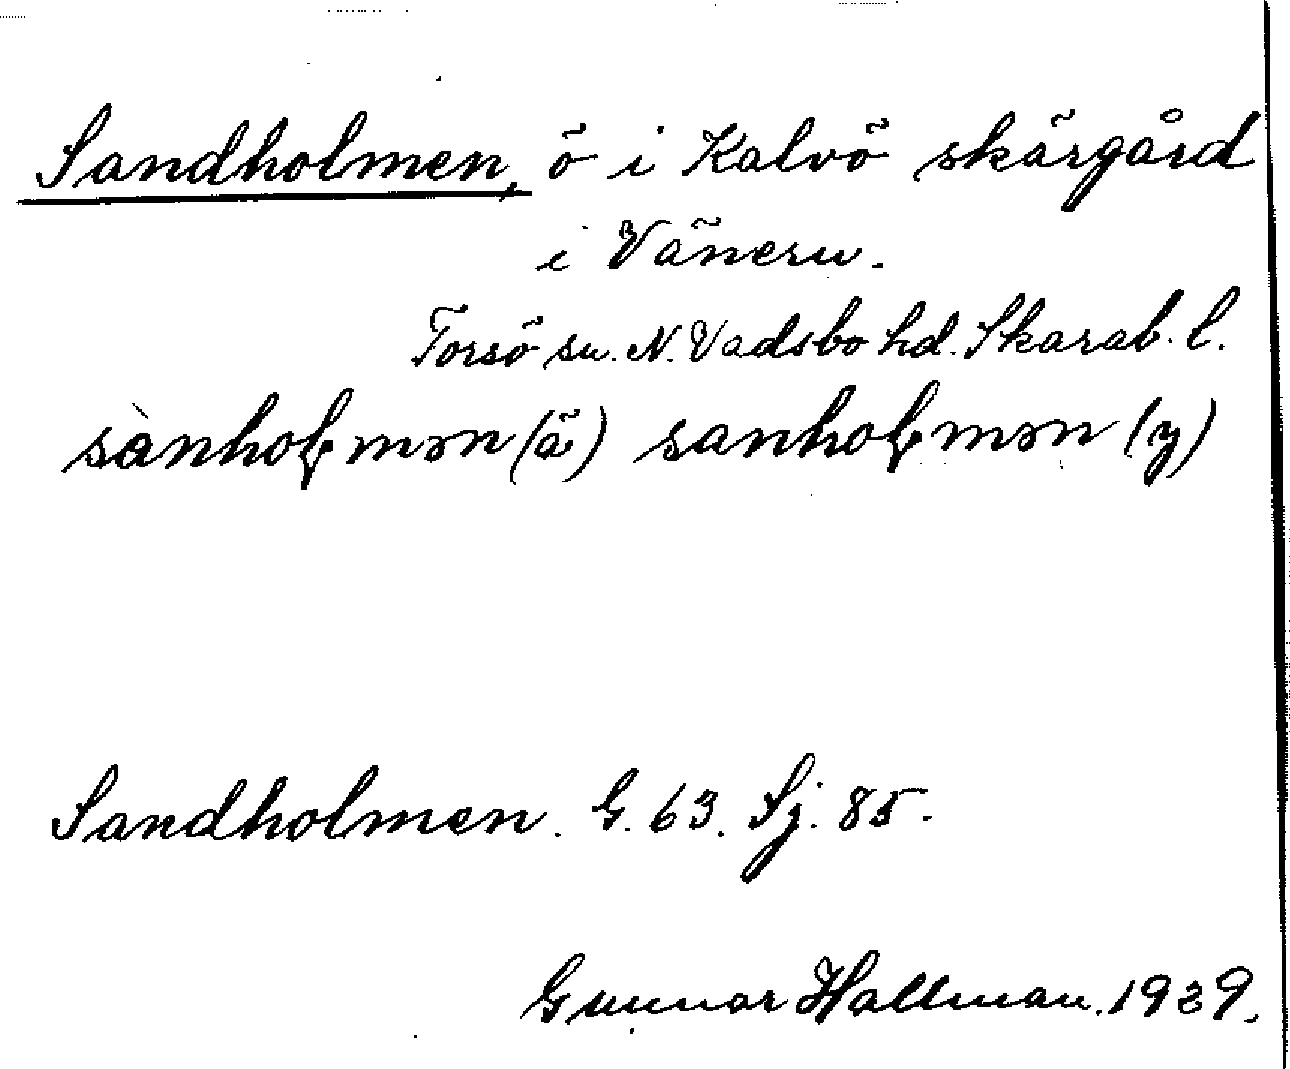 Sandholmen, ö i Kalvö skärgård
i Vänern.
Torsö sn. N. Vadsbo hd. Skarab. l.
sànhoɭmən (ä) sanhoɭmən (y)
Sandholmen. G. 63. Sj. 85.
Gunnar Hallman. 1939.